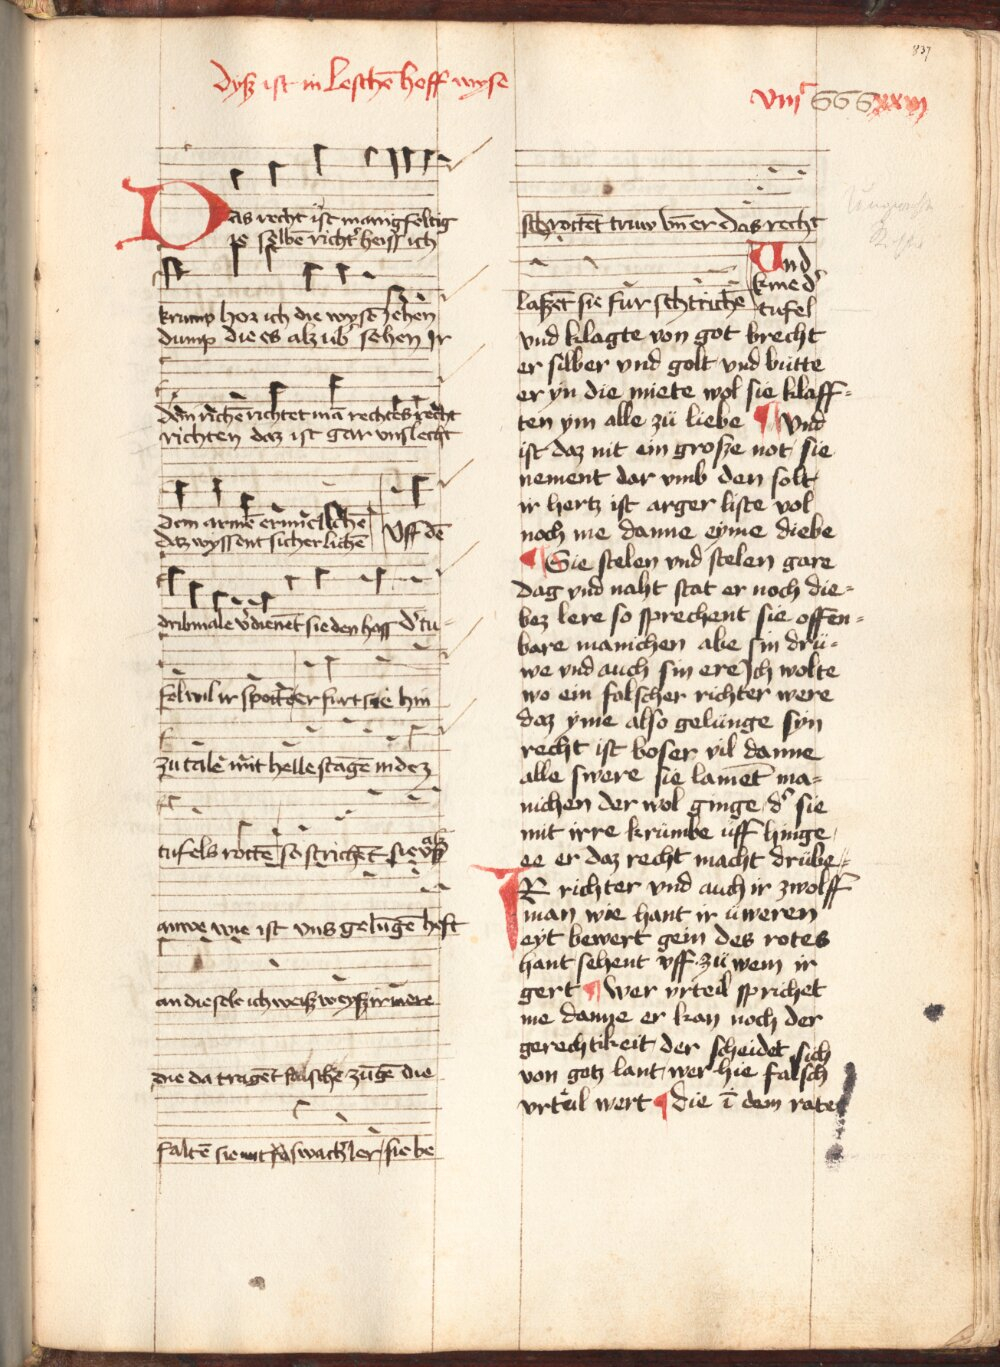 837
Dysz ist in Leschē hoff wyse
viijᶜ xxxvij
Das recht ist manigfeltig
je selbē richt' heiss ich
krump hoꝛ ich die wysē iehen
dump die es alz ub' sehen Ir
dem richē richtet mā rechtes recht
richten daz ist gar vnslecht
dem armē
daz wyssent sicherlichē Uff dē
dribmale v'dienēt sie den hass d' tu-
fel wil ir spottē er furt sie hin
zu tale mit helle stagē in dez
tufels rottē so strichēt sie
auwe wie ist vns gelūgē heft
an die sele ich weisz weysz ir mere
die da tragēt falsche zūgē die
faltē sie mit swach' ler sie be
schrottēt truw vm er das recht
laszēt sie fur sch strichē
Und
kme d'
tufel
vnd klagte von got brecht
er silber vnd golt vnd butte
er yn die miete wol sie klaff-
ten ym alle zü liebe Vnd
ist daz nit ein grosze not sie
nement dar vmb den solt
ir hertz ist arger liste vol
noch me danne eyme diebe
Sie stelen vnd stelen gare
dag vnd naht stat er noch die-
bez lere so sprechent sie offen-
bare manichen abe sin drü-
we vnd auch sin ere Ich wolte
wo ein falscher richter were
daz yme also gelünge syn
recht ist boser vil danne
alle swere sie lamēt ma-
nichen der wol ginge d' sie
mit irre krümbe uff hinge
ee er daz recht macht drübe
IR richter vnd auch ir zwolff
man wie hant ir üweren
eyt bewert gein des rotes
hant sehent vff zü wem ir
gert Wer vrteil sprichet
me danne er kan noch der
gerechtikeit der scheidet sich
von gotz lant wer hie falsch
vrteil wert die ī dem rate